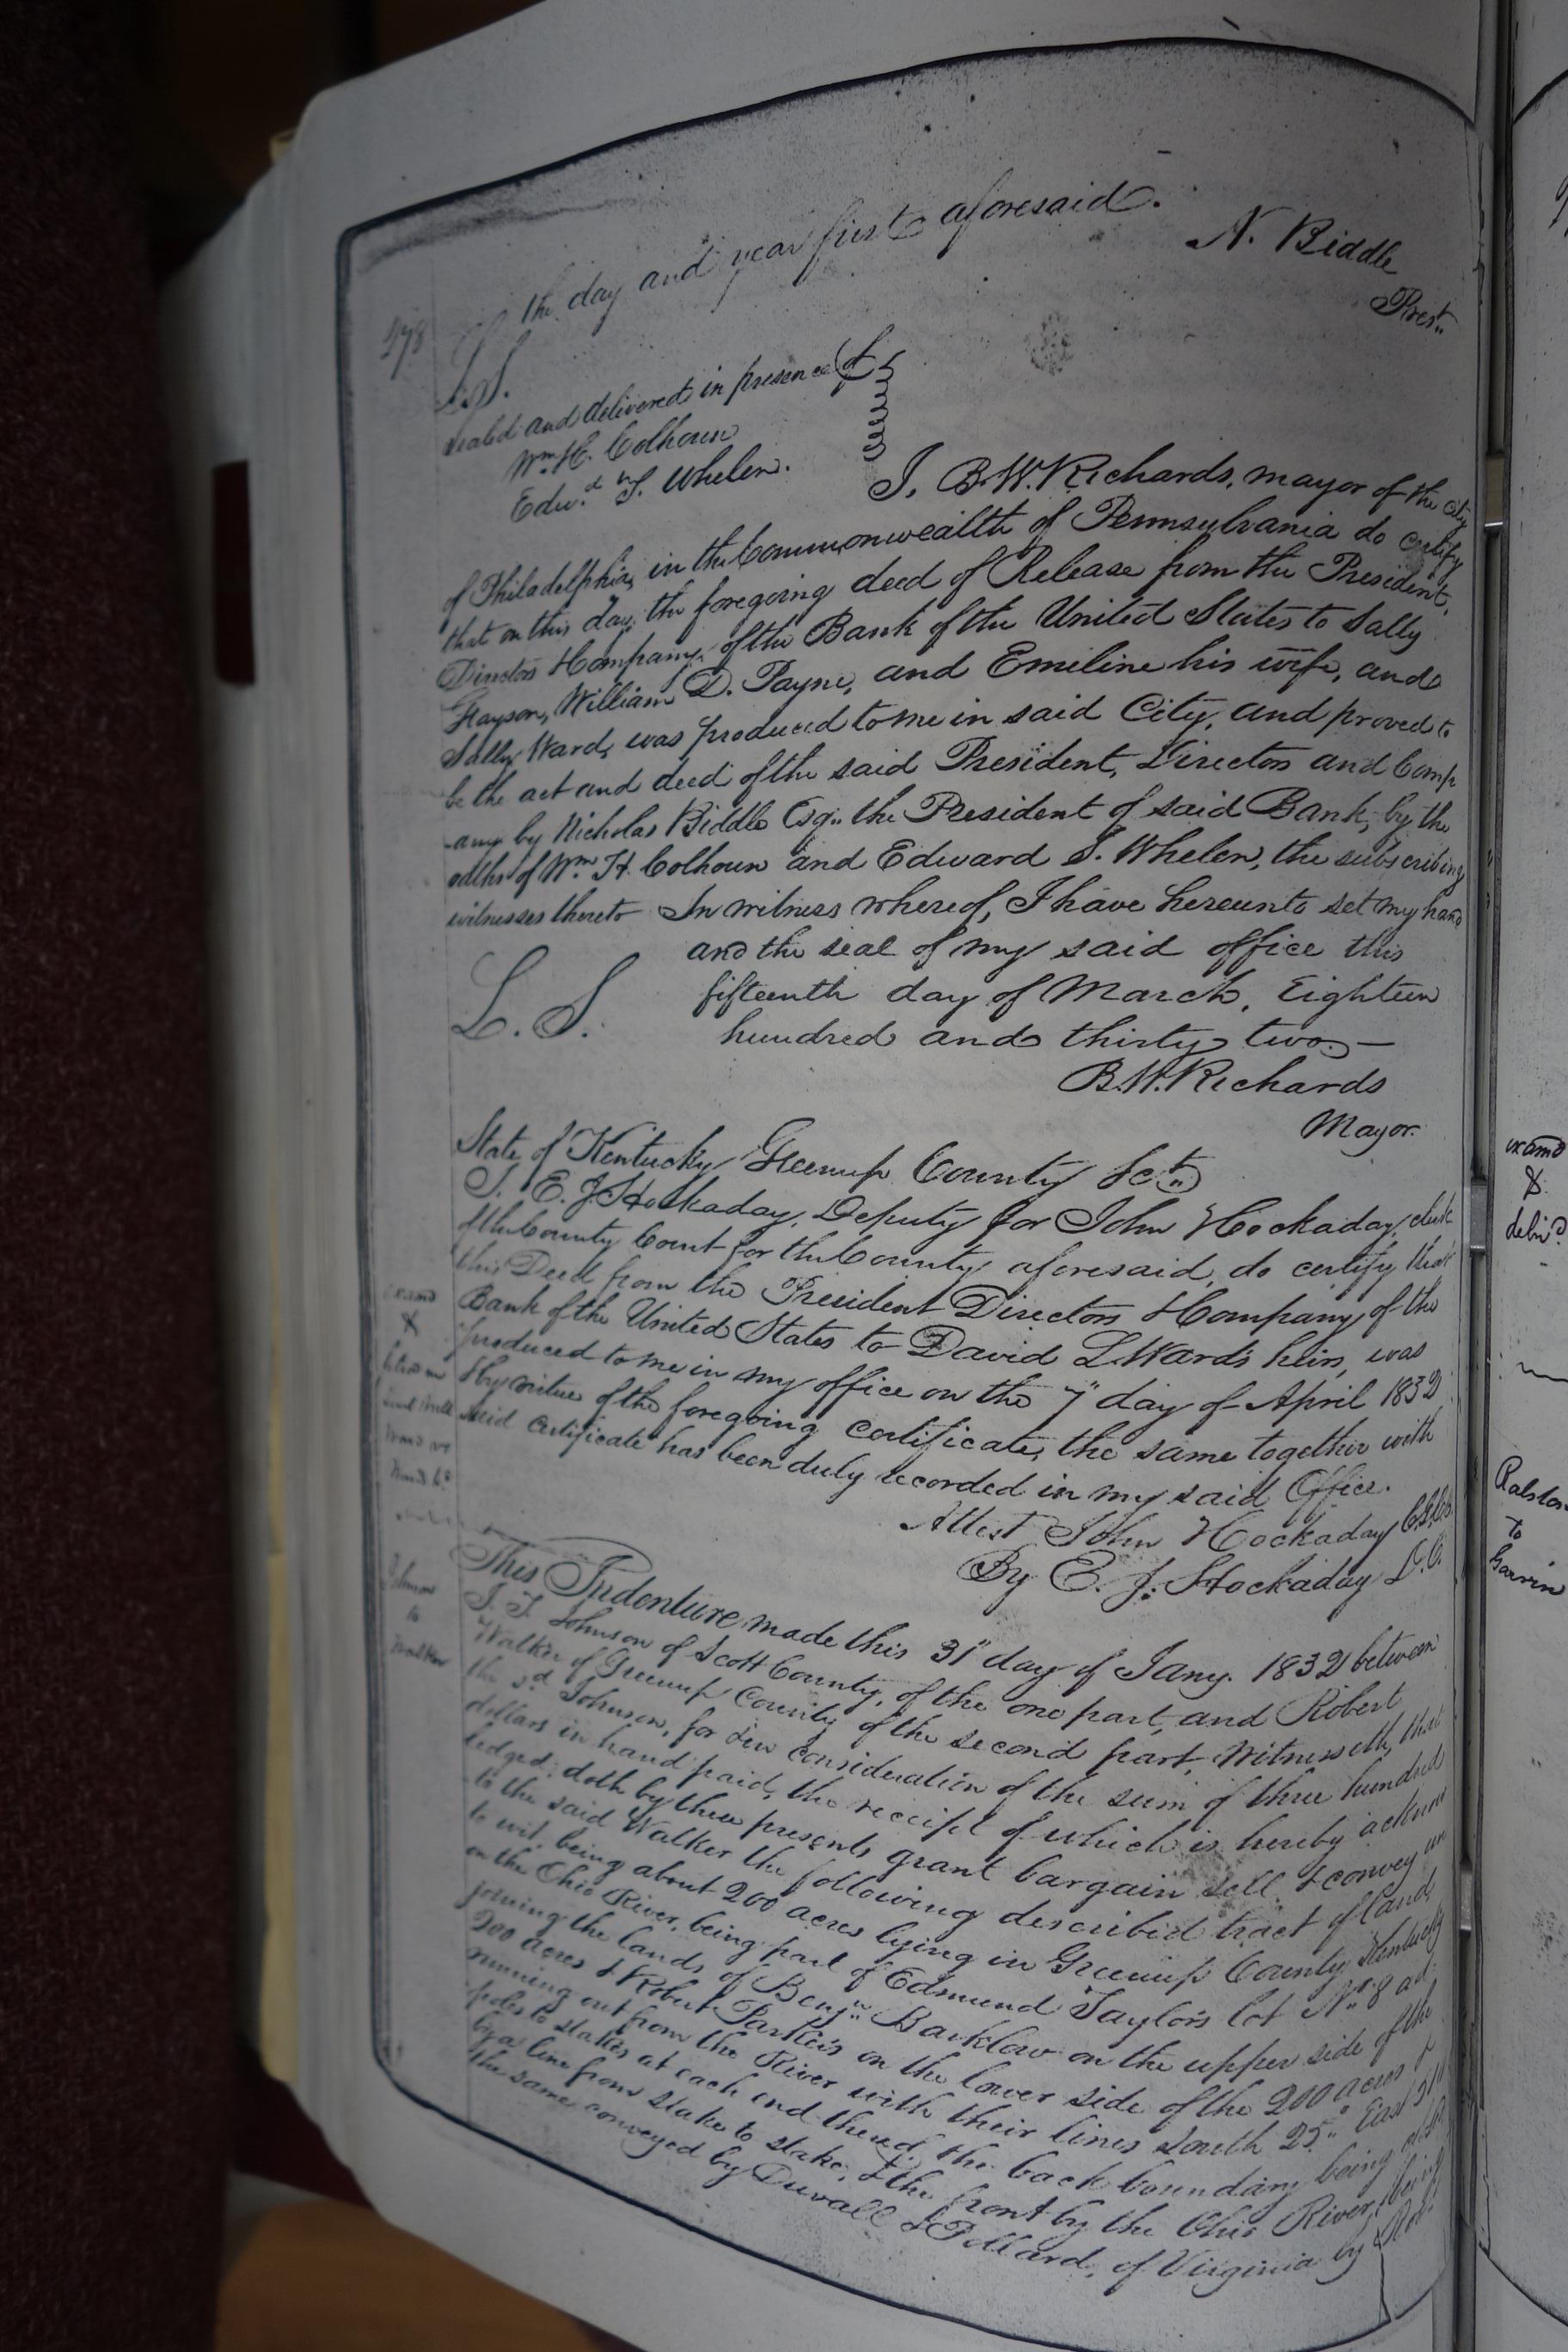 the day and year first aforesaid.
N. Biddle
Prest.
278
L.S.
Sealed and delivered in presence of
Wm. H. Colhoun
Edwd. S. Whelen.
I, B. W. Richards, mayor of the City
of Philadelphia, in the Commonwealth of Pennsylvania do certify
that on this day, the foregoing deed of Release from the President,
Directors & Company, of the Bank of the United States to Sally
Grayson, William D. Payne, and Emiline his wife, and
Sally Ward, was produced to me in said City, and proved to
be the act and deed of the said President, Directors and Comp
-any by Nicholas Biddle Esqr. the President of said Bank, by the
oaths of Wm. H. Colhoun and Edward S. Whelen, the subscribing
witnesses thereto In witness whereof, I have hereunto set my hand
and the seal of my said office this
fifteenth day of March, Eighteen
hundred and thirty two.
L. S.
B. W. Richards
Mayor.
State of Kentucky Greenup County Sct.
I. E. J. Hockaday, Deputy for John Hockaday, clerk
of the County Court for the County aforesaid, do certify that
this Deed from the President Directors & Company of the
Bank of the United States to David L. Ward's heirs, was
produced to me in my office on the 7" day of April 1832
& by virtue of the foregoing certificate, the same together with
said certificate has been duly recorded in my said Office.
Attest John Hockaday
By E. J. Hockaday D.C.
examd
&
Johnson
to
Walker
This Indenture made this 31" day of Jany. 1832 between
J. T. Johnson of Scott County, of the one part, and Robert
Walker of Greenup County of the second part, Witnesseth, that
the sd. Johnson, for & in consideration of the sum of three hundred
dollars in hand paid, the receipt of which is hereby acknow
ledged: doth by these presents grant bargain sell & convey un
to the said Walker the following described tract of land,
to wit, being about 200 acres lying in Greenup County Kentucky
on the Ohio River, being part of Edmund Taylor's lot No. 8 ad
joining the lands of Benjn. Barklow on the upper side of the
200 acres & Robert Parker's on the lower side of the 200 acres &
running out from the River with their lines South 25° East
poles to stakes at each end thereof, the back boundary being
by a line from stake to stake, & the front by the Ohio River, being
the same conveyed by Duvall & Pollard, of Virginia by
examd
&
delivd.
Ralston
to
Garvin